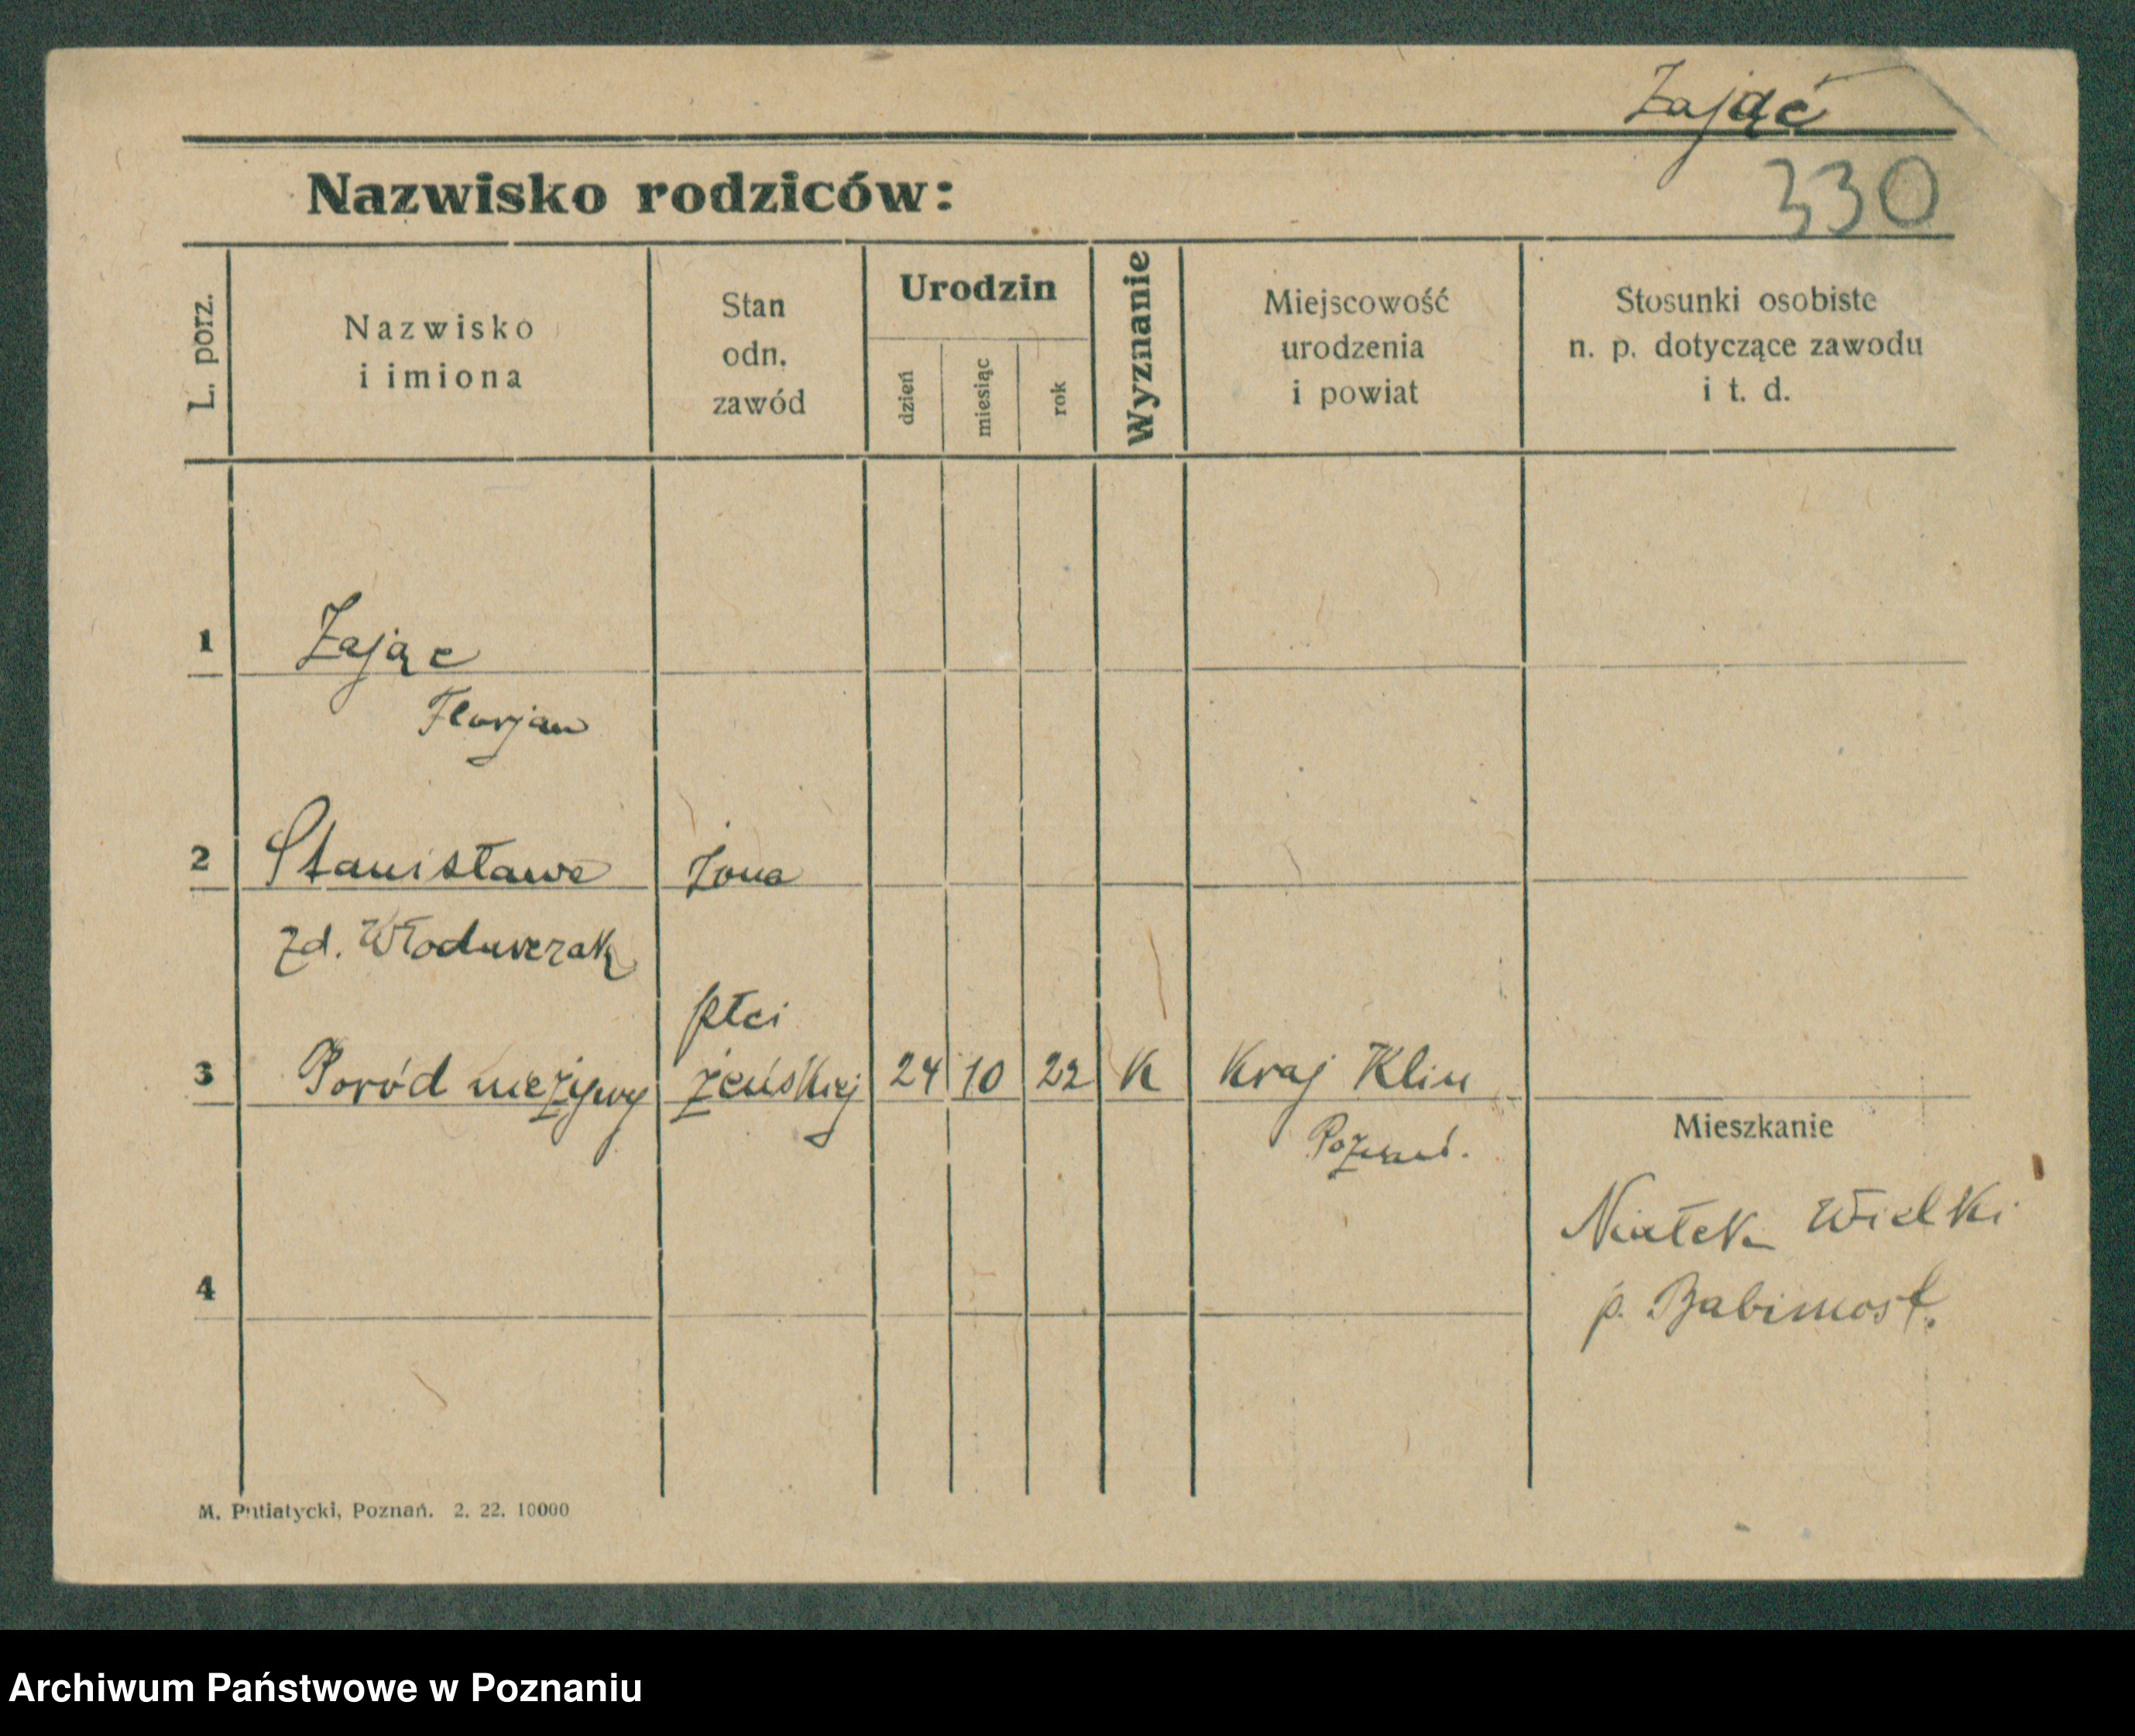 Zając
330
Nazwisko rodziców:
L. porz.
Nazwisko
i imiona
Stan
odn.
zawód
Urodzin
dzień
miesiąc
rok
Wyznanie
Miejscowość
urodzenia
i powiat
Stosunki osobiste
n. p. dotyczące zawodu
i t. d.
1 Zając
Florjan
2 Stanisława żona
zd. Włodarczak
płci
3 Poród nieżywy żeńskiej 24 10 22 K Kraj Klin
Poznań.
Mieszkanie
Niałek Wielki
p. Babimost.
4
M. Putiatycki, Poznań. 2. 22. 10000
Archiwum Państwowe w Poznaniu